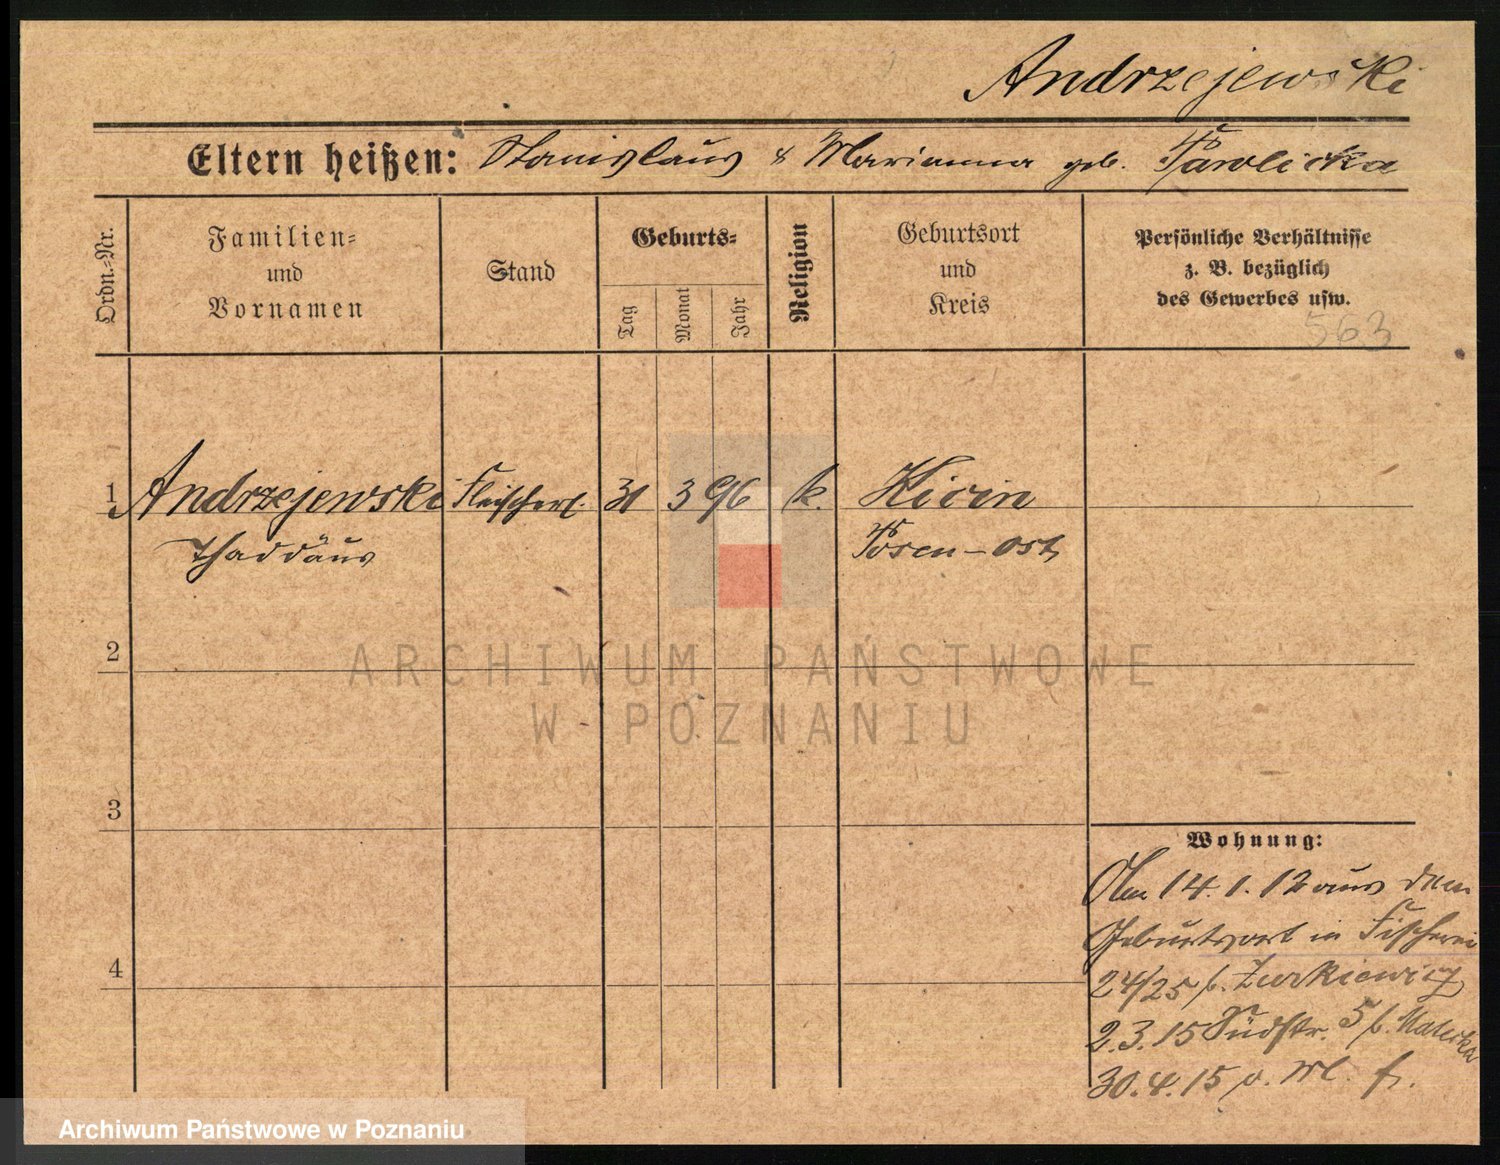 Andrzejewski
Eltern heißen: Stanislaus & Marianna geb. Pawlicka
Ordn.-Nr.
Familien-
und
Vornamen
Stand
Geburts-
Tag
Monat
Jahr
Religion
Geburtsort
und
Kreis
Persönliche Verhältnisse
z. B. bezüglich
des Gewerbes usw.
563
1 Andrzejewski Fleischerl. 31 3 96 k. Kicin
Thaddäus Posen-Ost
2
ARCHIWUM PAŃSTWOWE
W POZNANIU
3
Wohnung:
Am 14.1.12 aus dem
Geburtsort in Fischerei
4
24/25 b. Zurkiewicz
2.3.15 Südstr. 5 b.
30.4.15
Archiwum Państwowe w Poznaniu